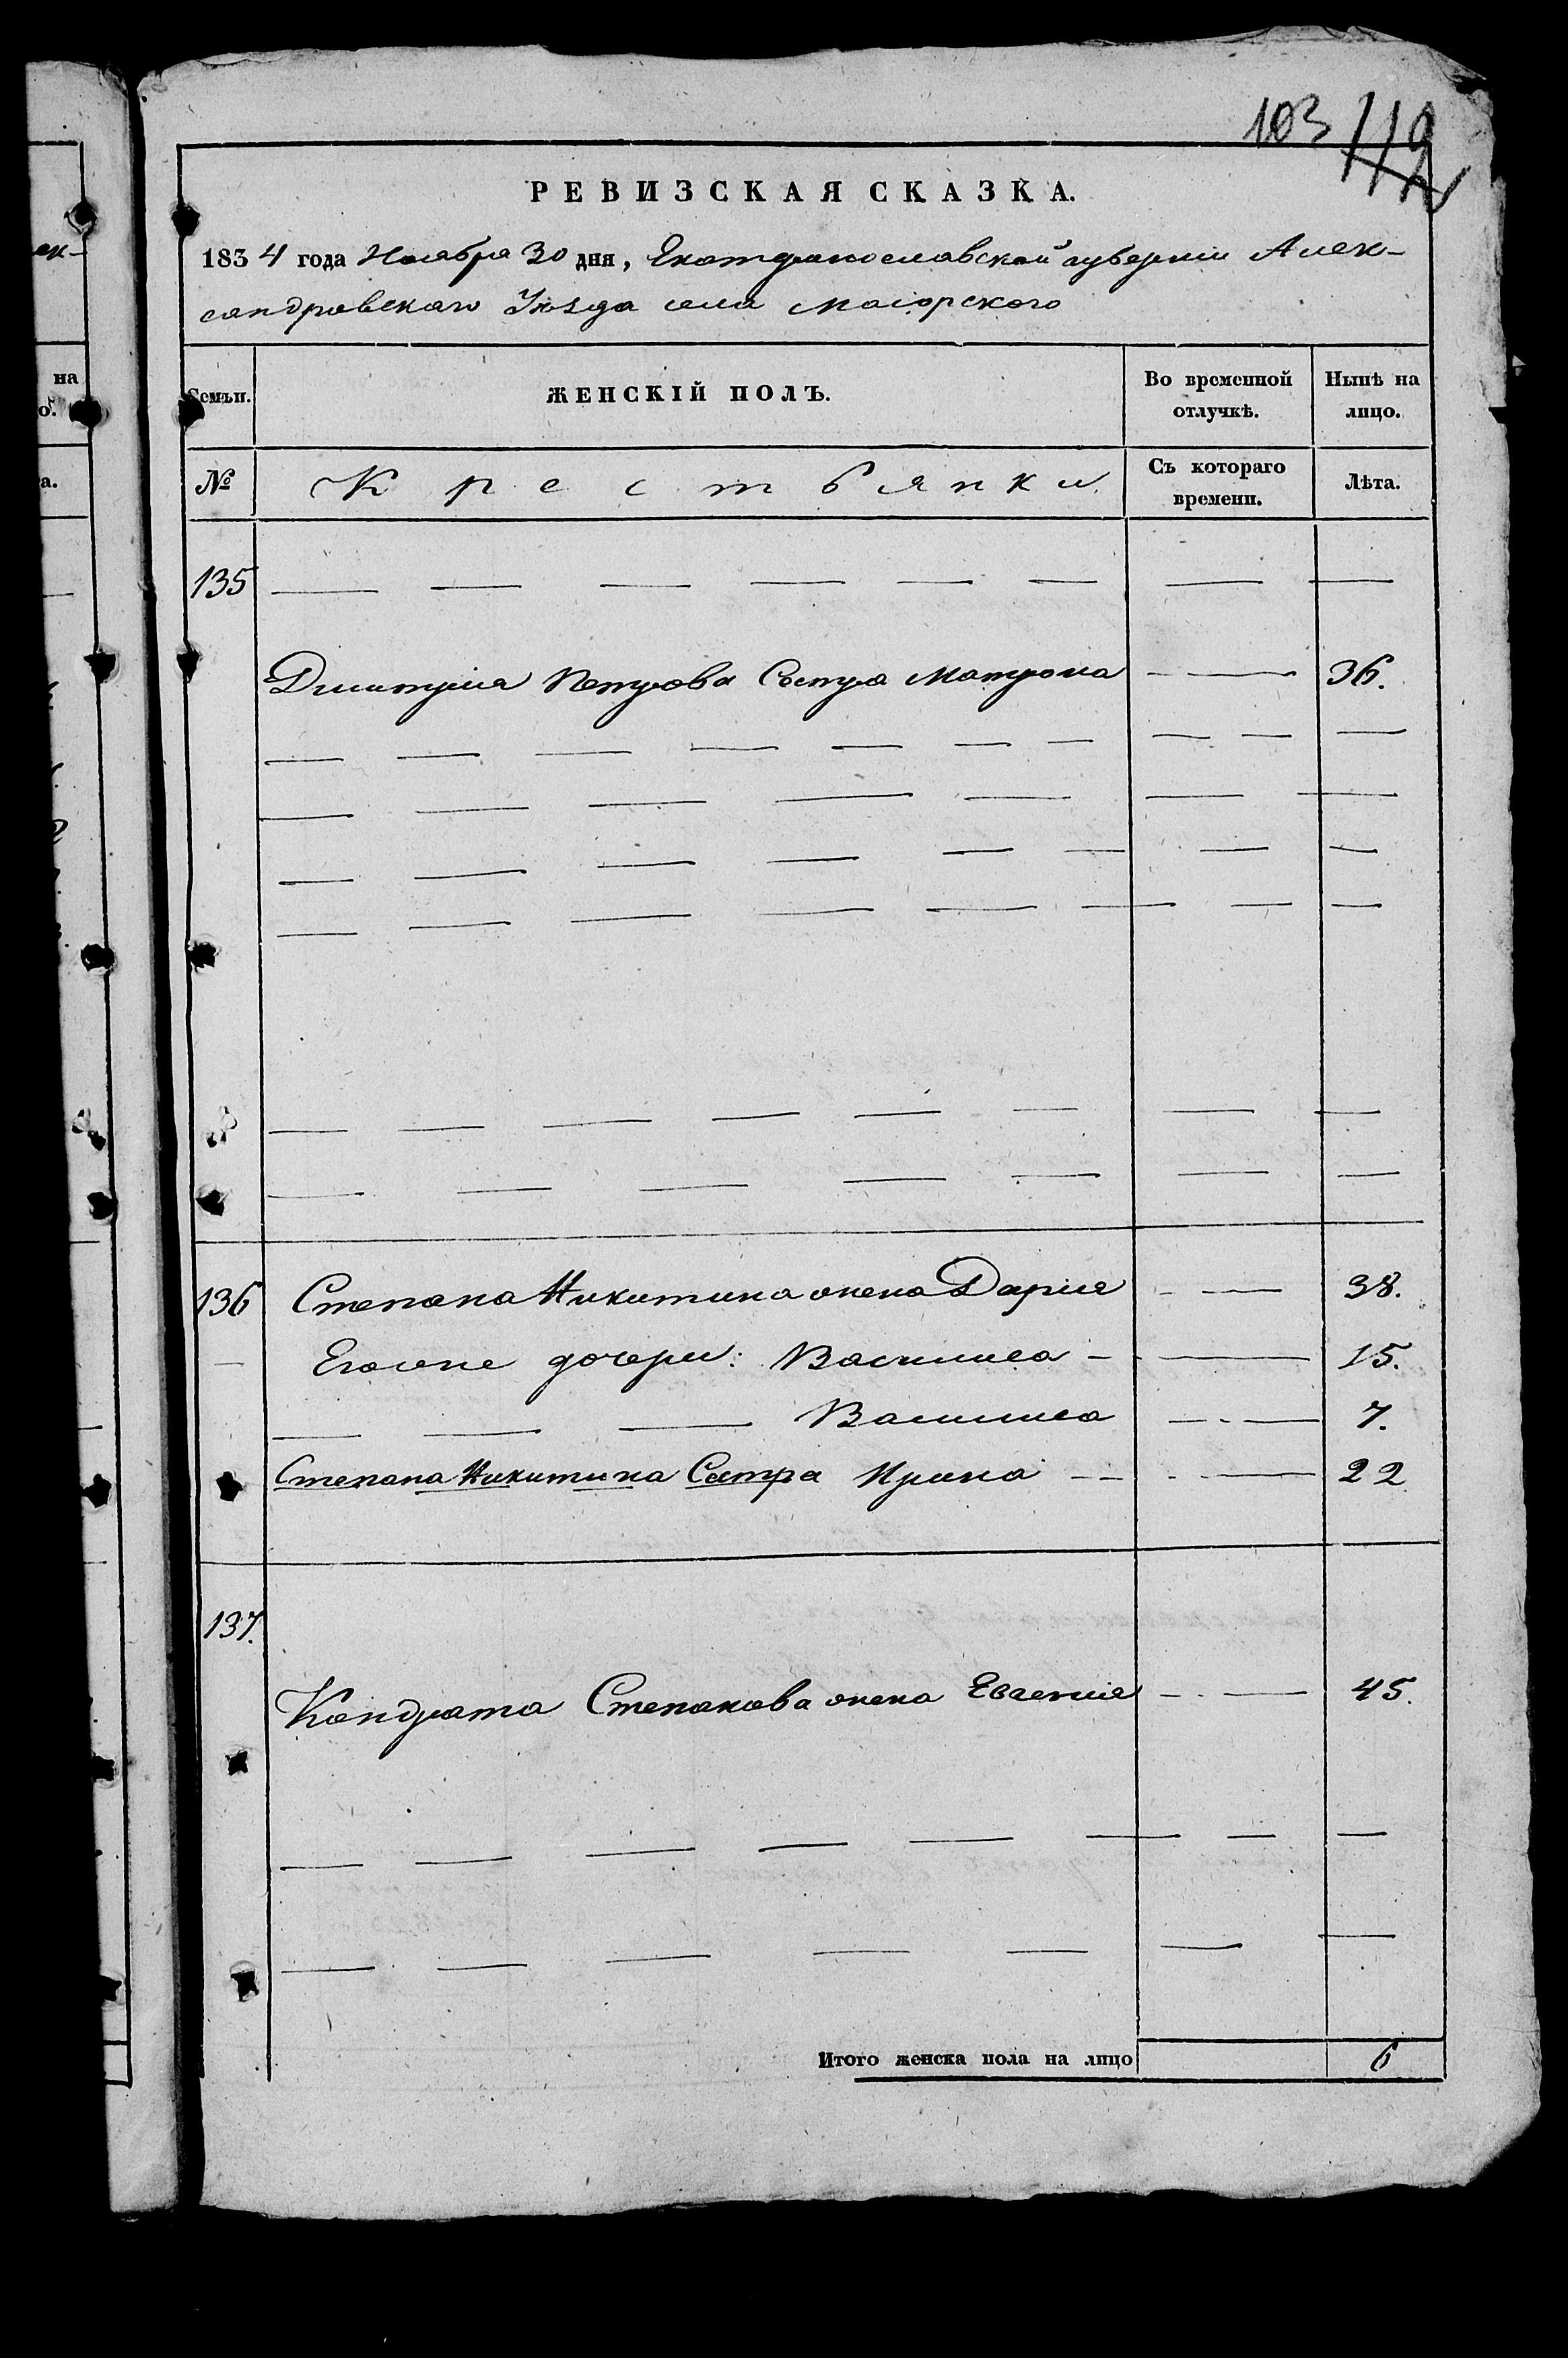 103 112
РЕВИЗСКАЯ СКАЗКА.
1834 года Ноября 30 дня, Екатеринославской губернии Алек-
сандровскаго Уѣзда села Маіорского
Семьи. ЖЕНСКІЙ ПОЛЪ. Во временной отлучкѣ. Нынѣ на лицо.
№ Крестьянки. Съ котораго времени. Лѣта.
135
Дмитрия Петрова Сестра Матрона 36.
136 Степана Никитина жена Дария 38.
Егоже дочери: Василиса 15.
Василиса 7.
Степана Никитина Сестра Ирина 22
137.
Кондрата Степанова жена Евгения 45.
Итого женска пола на лицо 6
ек-
на
о.
а.